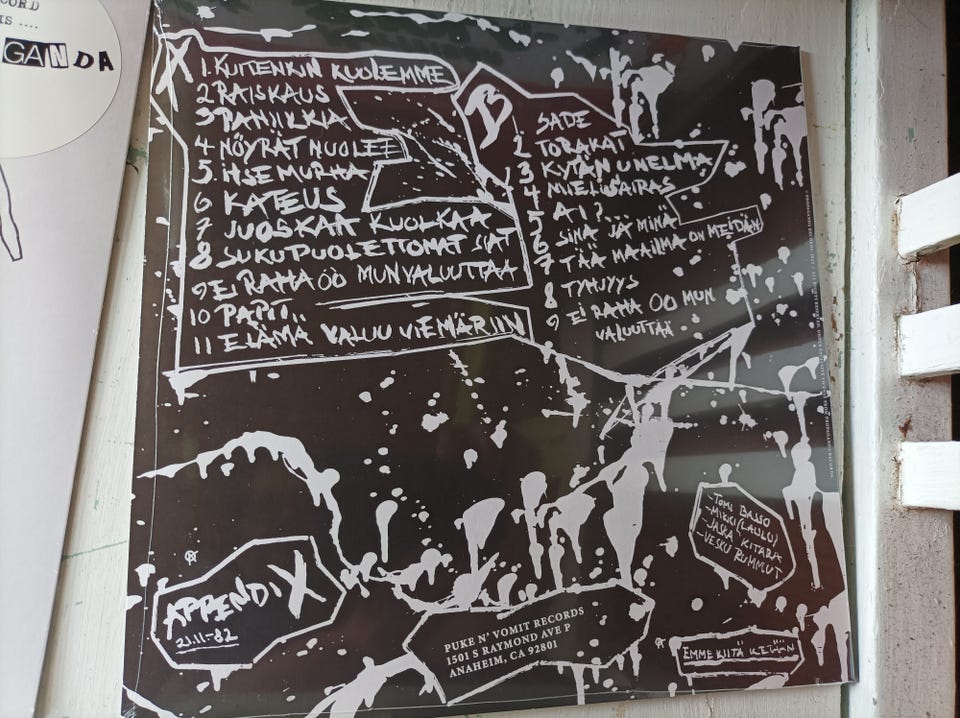 CORD
IS ....
GANDA
1. KUITENKIN KUOLEMME
2 RAISKAUS
3 PANIIKKIA
4 NÖYRÄT NUOLEE
5. ITSEMURHA
6 KATEUS
7 JUOSKAA KUOLKAA
8 SUKUPUOLETTOMAT SIAT
9 EI RAHA OO MUN VALUUTTAA
10 PAPIT..
11 ELÄMÄ VALUU VIEMÄRIIN
B
1 SADE
2 TORAKAT
3 KYTÄN UNELMA
4 MIELISAIRAS
5 AI?...
6 SINÄ JA MINÄ
7 TÄÄ MAAILMA ON MEIDÄN
8 TYHJYYS
9 EI RAHA OO MUN
VALUUTTAA
- TOMI BASSO
- MIKKI (LAULU)
- JASKA KITARA
- VESKU RUMMUT
APPENDIX
21.11-82
PUKE N' VOMIT RECORDS
1501 S RAYMOND AVE P
ANAHEIM, CA 92801
EMME KIITÄ KETÄÄN